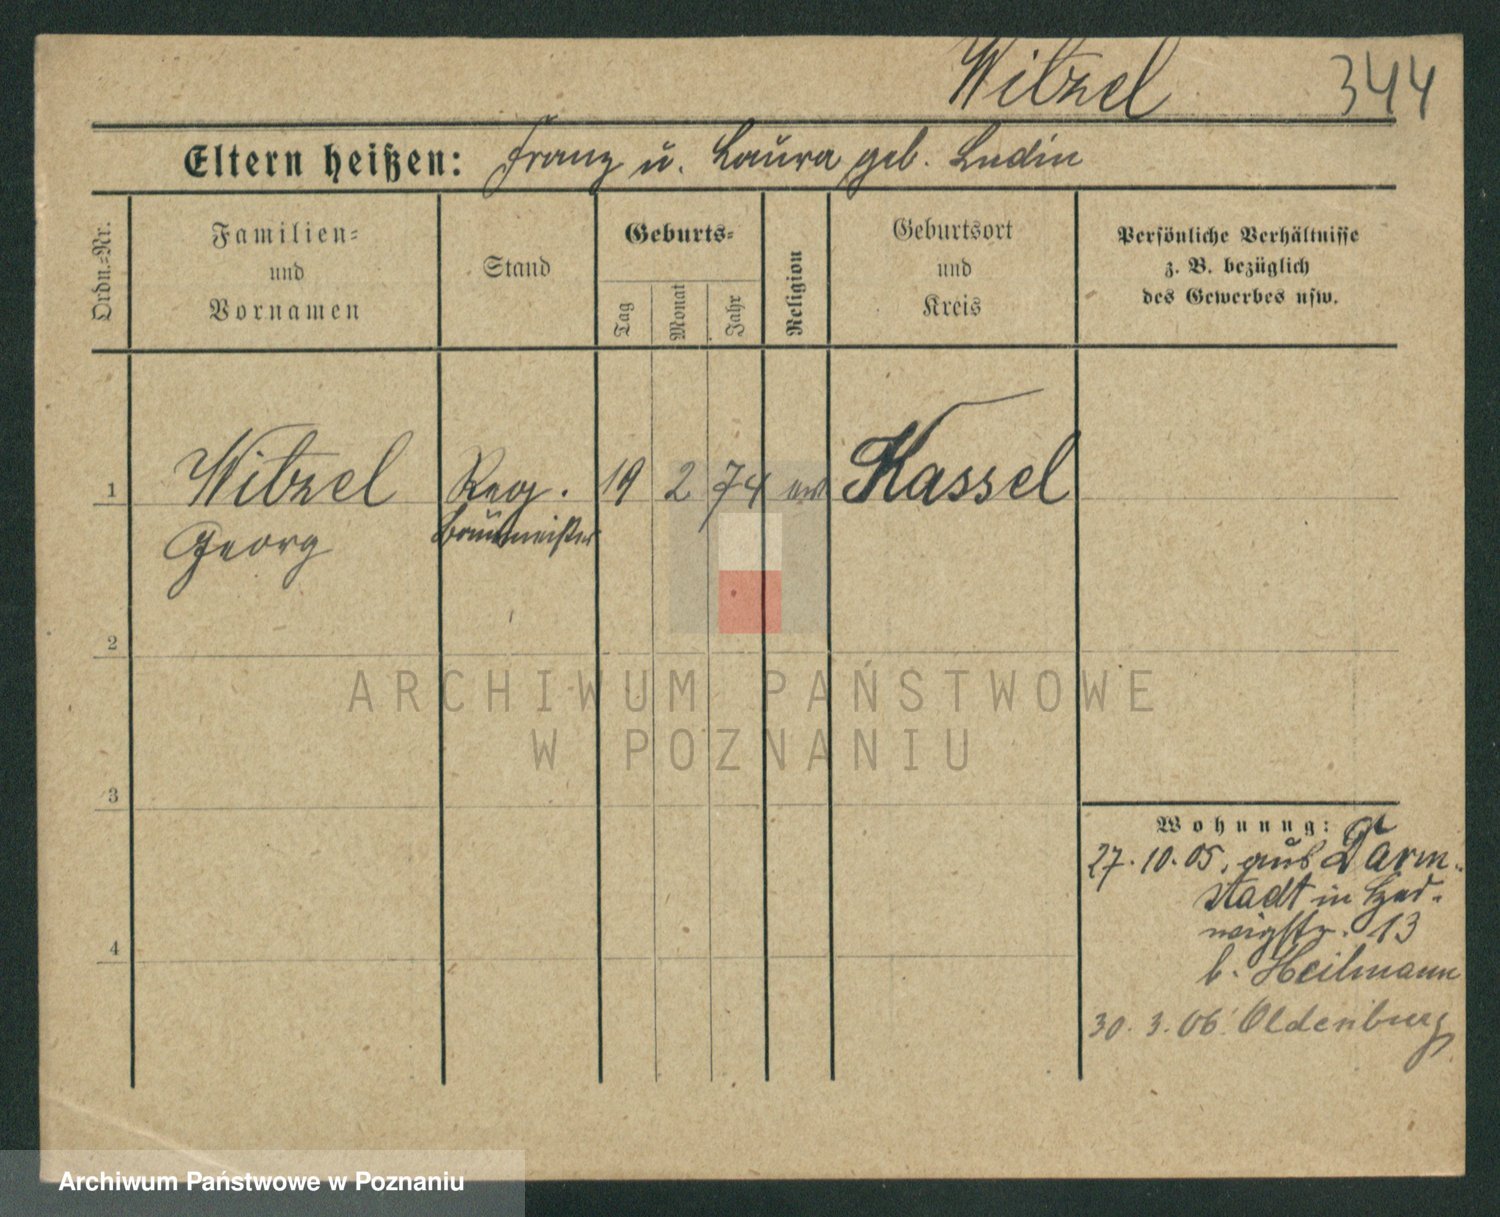 Witzel 344
Eltern heißen: Franz u. Laura geb. Ludin
Ordn.-Nr.
Familien-
und
Vornamen
Stand
Geburts-
Tag
Monat
Jahr
Religion
Geburtsort
und
Kreis
Persönliche Verhältnisse
z. B. bezüglich
des Gewerbes usw.
1 Witzel Reg. 19 2 74 ev Kassel
Georg Baumeister
2
3
4
Wohnung:
27.10.05. aus Darm-
stadt in Hed-
wigstr. 13
b. Heilmann
30.3.06. Oldenburg
ARCHIWUM PAŃSTWOWE
W POZNANIU
Archiwum Państwowe w Poznaniu